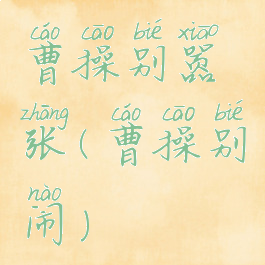 cáo cāo bié xiāo
曹操别嚣
zhāng cáo cāo bié
张（曹操别
nào
闹）